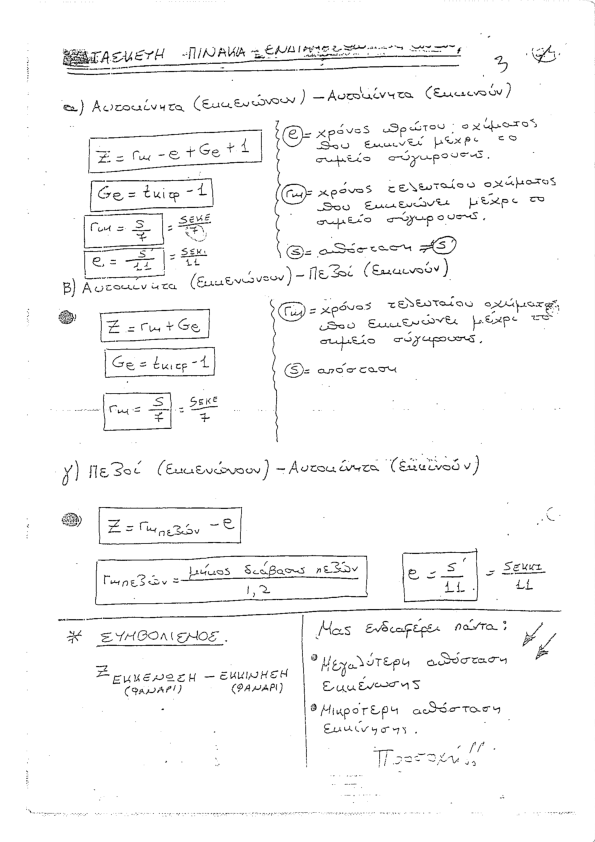 ΚΑΤΑΣΚΕΥΗ ΠΙΝΑΚΑ ΕΝΔΙΑΜΕΣΩΝ
3
α) Αυτοκίνητα (Εκκενώνουν) - Αυτοκίνητα (Εκκινούν)
Z = rω - e + Ge + 1
Ge = tκιτρ - 1
rω = S/7 = SΕΚΕ/7
e = S'/11 = SΕΚΙ/11
e = χρόνος πρώτου οχήματος
που εκκινεί μέχρι το
σημείο σύγκρουσης.
rω = χρόνος τελευταίου οχήματος
που εκκενώνει μέχρι το
σημείο σύγκρουσης.
S = απόσταση ≠ S'
β) Αυτοκίνητα (Εκκενώνουν) - Πεζοί (Εκκινούν)
Z = rω + Ge
Ge = tκιτρ - 1
rω = S/7 = SΕΚΕ/7
rω = χρόνος τελευταίου οχήματος
που εκκενώνει μέχρι το
σημείο σύγκρουσης.
S = απόσταση
γ) Πεζοί (Εκκενώνουν) - Αυτοκίνητα (Εκκινούν)
Z = rω πεζών - e
rω πεζών = μήκος διάβασης πεζών / 1,2
e = S'/11 = SΕΚΚΙ/11
* ΣΥΜΒΟΛΙΣΜΟΣ.
Z ΕΚΚΕΝΩΣΗ - ΕΚΚΙΝΗΣΗ
(ΦΑΝΑΡΙ) (ΦΑΝΑΡΙ)
Μας ενδιαφέρει πάντα:
• Μεγαλύτερη απόσταση
εκκένωσης
• Μικρότερη απόσταση
εκκίνησης.
Προσοχή!!